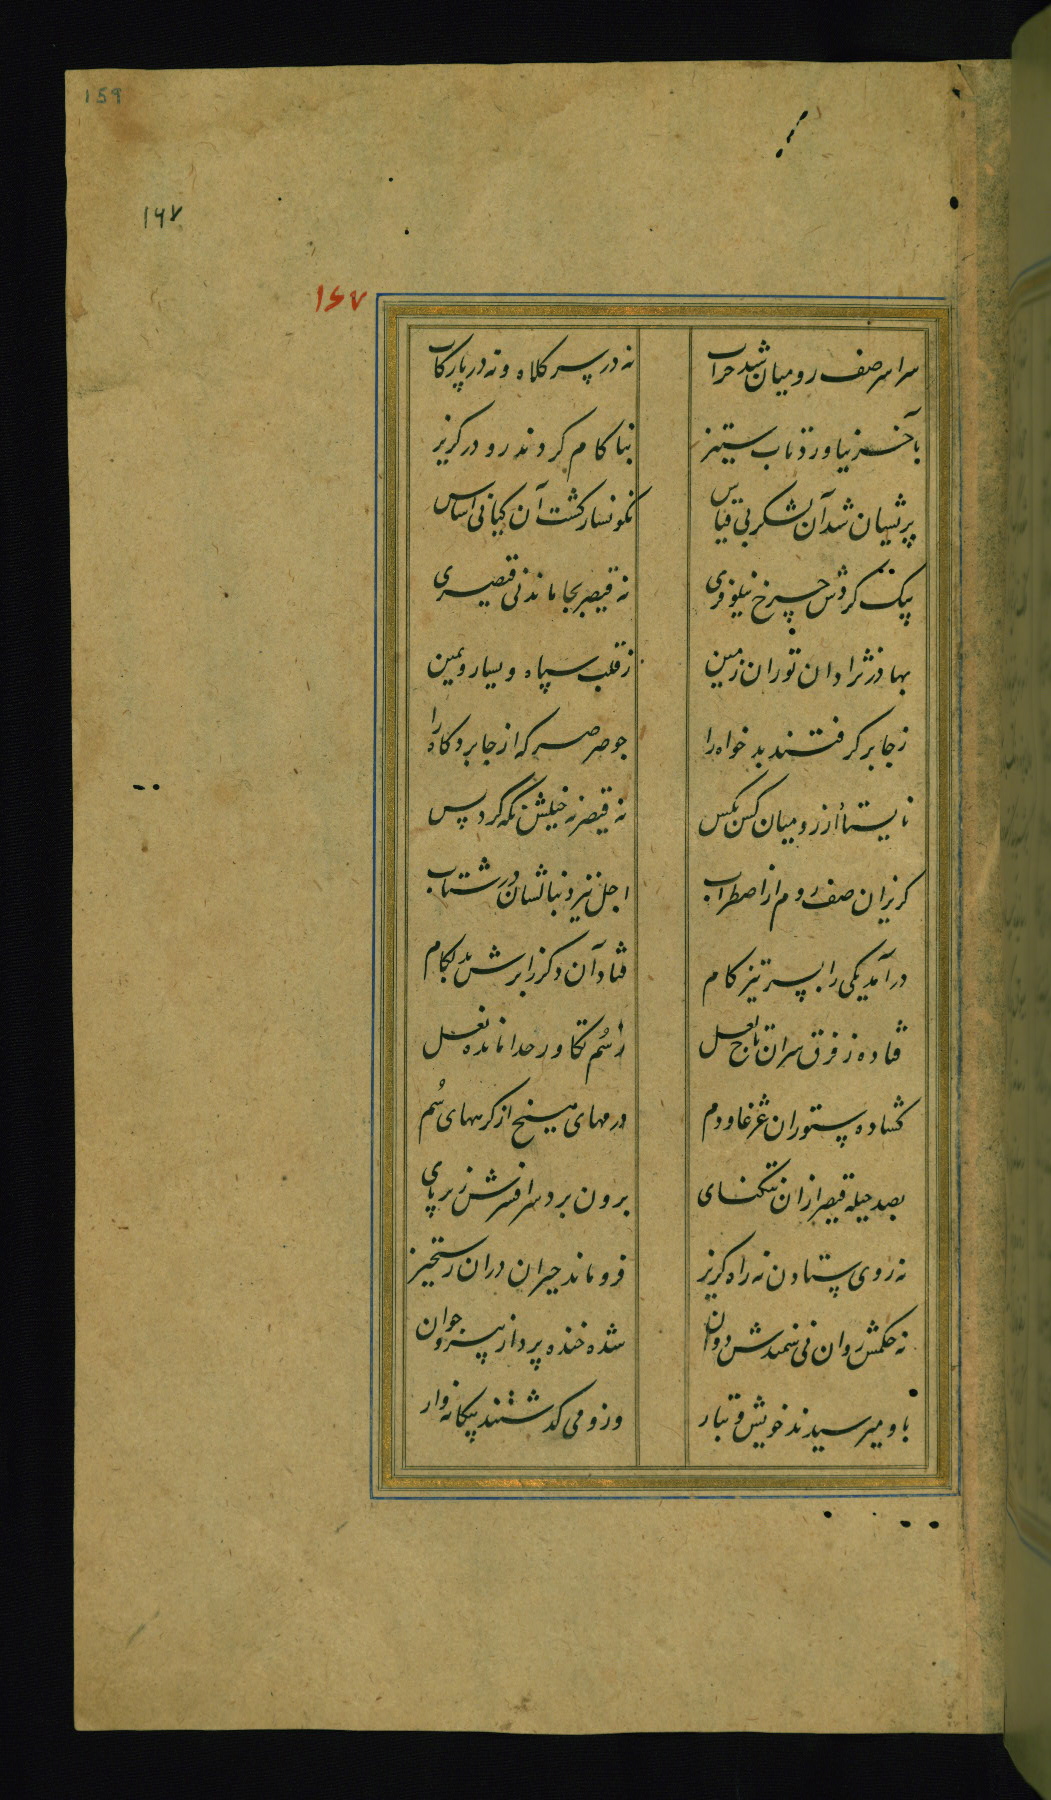 159
۱۶۷
۱۶۷
سراسر صف رومیان شد خراب نه در سر کلاه و نه در پا رکاب
بآخر نیاورد تاب ستیز بناکام کردند رو در کریز
پریشان شد آن لشکر بی قیاس نکونسار کشت آن کیانی اساس
بیک کردش چرخ نیلوفری نه قیصر بجا ماند نی قیصری
بهادر نژادان توران زمین ز قلب سپاه و یسار و یمین
ز جا بر کرفتند بدخواه را چو صرصر که از جا برد کاه را
نایستاد از رومیان کس بکس نه قیصر نه خیلش نکه کرد پس
کریزان صف روم از اضطراب اجل نیز دنبالشان در شتاب
درآمد یکی را بسر تیز کام فتاد آن دکر را برش بد لکام
فتاده ز فرق سران تاج لعل ز سُم تکاور جدا مانده نعل
کشاده ستوران غژغاو دم درمهای میخ از کرههای سُم
بصد حیله قیصر ازان تنکنای برون برد سر افسرش زیر پای
نه روی ستادن نه راه کریز فرو ماند حیران دران رستخیز
نه حکمش روان نی سمندش دوان شده خنده پرداز پیر و جوان
باو میرسیدند خویش و تبار وزو می کذشتند بیکانه وار